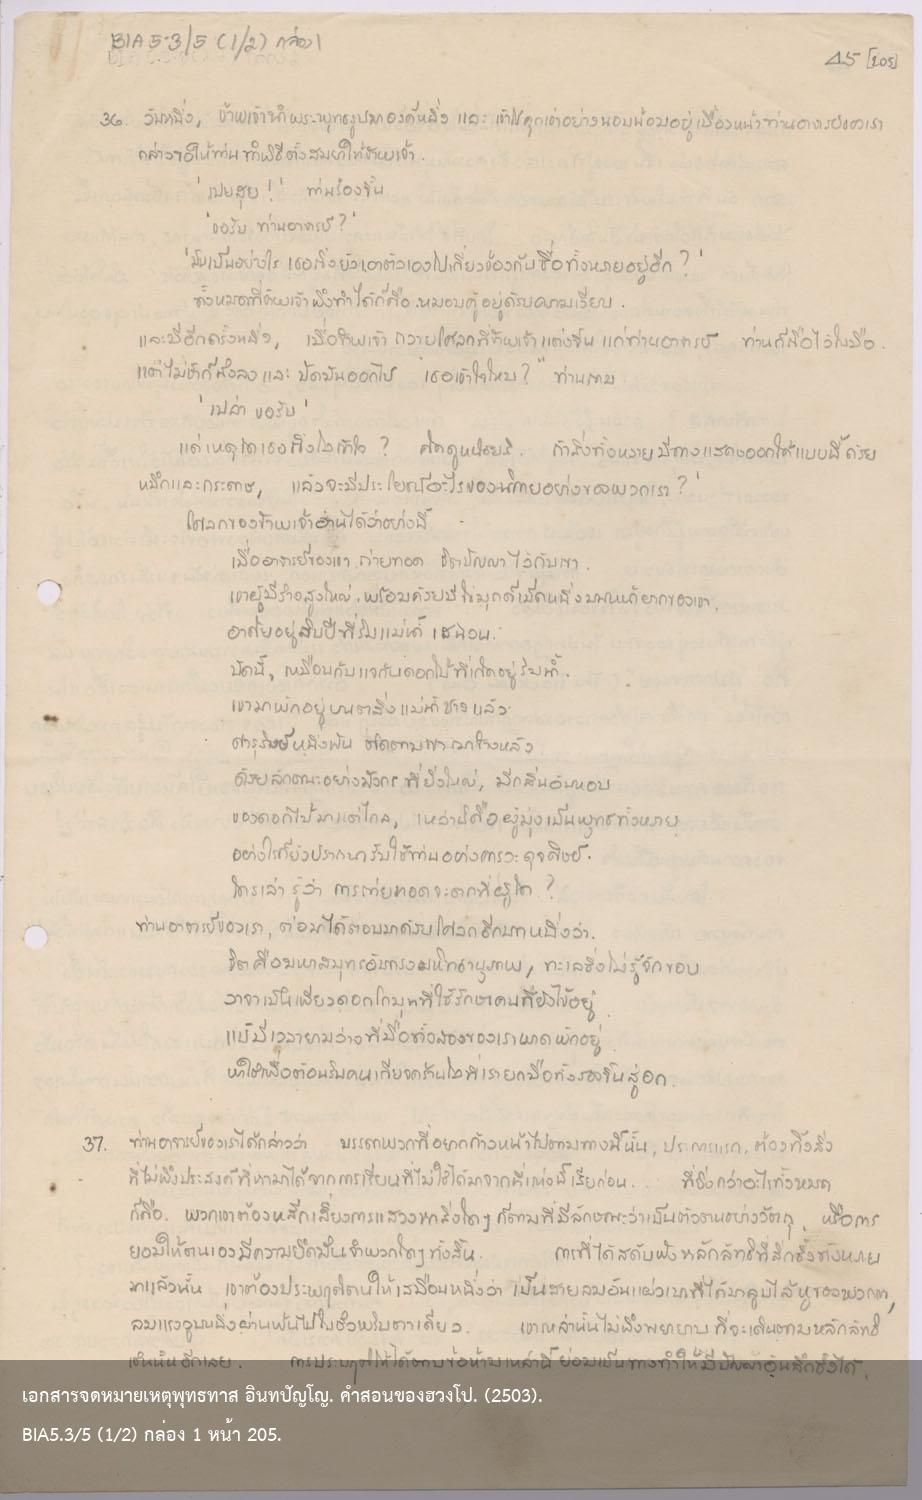 BIA 5.3/5 (1/2) กล่อง 1
45 [205]
36. วันหนึ่ง, ข้าพเจ้านำพระพุทธรูปมาองค์หนึ่ง และ เข้าไปคุกเข่าอย่างนอบน้อมอยู่เบื้องหน้าท่านอาจารย์ของเรา
กล่าวขอให้ท่านทำพิธีตั้งสมยาให้ข้าพเจ้า.
'เปยสุย !' ท่านร้องขึ้น
'ขอรับ ท่านอาจารย์ ?'
'มันเป็นอย่างไร เธอจึงยังเอาตัวเองไปเกี่ยวข้องกับชื่อทั้งหลายอยู่อีก ?'
ทั้งหมดที่ข้าพเจ้าพึงทำได้ก็คือ หมอบคู้อยู่ด้วยความเงียบ.
และมีอีกครั้งหนึ่ง, เมื่อข้าพเจ้า ถวายโศลกที่ข้าพเจ้าแต่งขึ้น แก่ท่านอาจารย์ ท่านก็ถือไว้ในมือ.
แต่ไม่ช้าก็นั่งลง และ ปัดมันออกไป "เธอเข้าใจไหม ?" ท่านถาม
'เปล่า ขอรับ'
แต่เหตุใดเธอจึงไม่เข้าใจ ? คิดดูหน่อยซิ. ถ้าสิ่งทั้งหลายมีทางแสดงออกได้แบบนี้ ด้วย
หมึกและกระดาษ, แล้วจะมีประโยชน์อะไรของนิกายอย่างของพวกเรา ?'
โศลกของข้าพเจ้าอ่านได้ว่าอย่างนี้ -
เมื่ออาจารย์ของเขา ถ่ายทอด จิตปัญญา ไว้กับเขา.
เขาผู้มีร่างสูงใหญ่ พร้อมด้วยมีไข่มุกเม็ดหนึ่งบนหน้าผากของเขา,
อาศัยอยู่สิบปีที่ริมแม่น้ำ เสฉวน.
บัดนี้, เหมือนกับแจกันดอกไม้ที่เกิดอยู่ริมน้ำ.
เขามาพักอยู่บนตลิ่งแม่น้ำชางแล้ว
สานุศิษย์หนึ่งพัน ติดตามเขามาข้างหลัง
ด้วยลักษณะอย่างมังกรที่ยิ่งใหญ่, มีกลิ่นอันหอม
ของดอกไม้มาแต่ไกล, เหล่านี้คือผู้มุ่งเป็นพุทธทั้งหลาย
อย่างไรก็ยังปรารถนารับใช้ท่านอย่างคารวะดุจศิษย์.
ใครเล่า รู้ว่า การถ่ายทอดจะตกที่ผู้ใด ?
ท่านอาจารย์ของเรา, ต่อมาได้ตอบมาด้วยโศลกอีกบทหนึ่งว่า.
จิตคือมหาสมุทรอันทรงมหิทธานุภาพ, ทะเลซึ่งไม่รู้จักขอบ
วาจาเป็นเพียงดอกโกมุทที่ใช้รักษาคนที่ยังไข้อยู่
แม้มีเวลายามว่างที่มือทั้งสองของเราพาดพักอยู่
หาใช่เพื่อต้อนรับคนเกียจคร้านไม่ที่เรายกมือทั้งสองขึ้นสู่อก.
37. ท่านอาจารย์ของเราได้กล่าวว่า บรรดาพวกที่อยากก้าวหน้าไปตามทางนี้นั้น, ประการแรก, ต้องทิ้งสิ่ง
ที่ไม่พึงประสงค์ที่หามาได้จากการเรียนที่ไม่ใช่ได้มาจากที่แห่งนี้เสียก่อน. ที่ยิ่งกว่าอะไรทั้งหมด
ก็คือ. พวกเขาต้องหลีกเลี่ยงการแสวงหาสิ่งใดๆ ก็ตามที่มีลักษณะว่าเป็นตัวตนอย่างวัตถุ, หรือการ
ยอมให้ตนเองมีความยึดมั่นจำพวกใดๆ ทั้งสิ้น. การที่ได้สดับฟังหลักลัทธิที่ลึกซึ้งทั้งหลาย
มาแล้วนั้น เขาต้องประพฤติตนให้เสมือนหนึ่งว่า เป็นสายลมอันแผ่วเบาที่ได้มาลูบไล้หูของพวกเขา,
ลมแรงวูบหนึ่งผ่านพ้นไปในชั่วพริบตาเดียว. เขาเหล่านั้นไม่พึงพยายามที่จะเดินตามหลักลัทธิ
เช่นนั้นอีกเลย. การประพฤติให้ได้ตามข้อห้ามเหล่านี้ ย่อมเป็นทางทำให้มีปัญญาอันลึกซึ้งได้.
เอกสารจดหมายเหตุพุทธทาส อินทปัญโญ. คำสอนของฮวงโป. (2503).
BIA5.3/5 (1/2) กล่อง 1 หน้า 205.